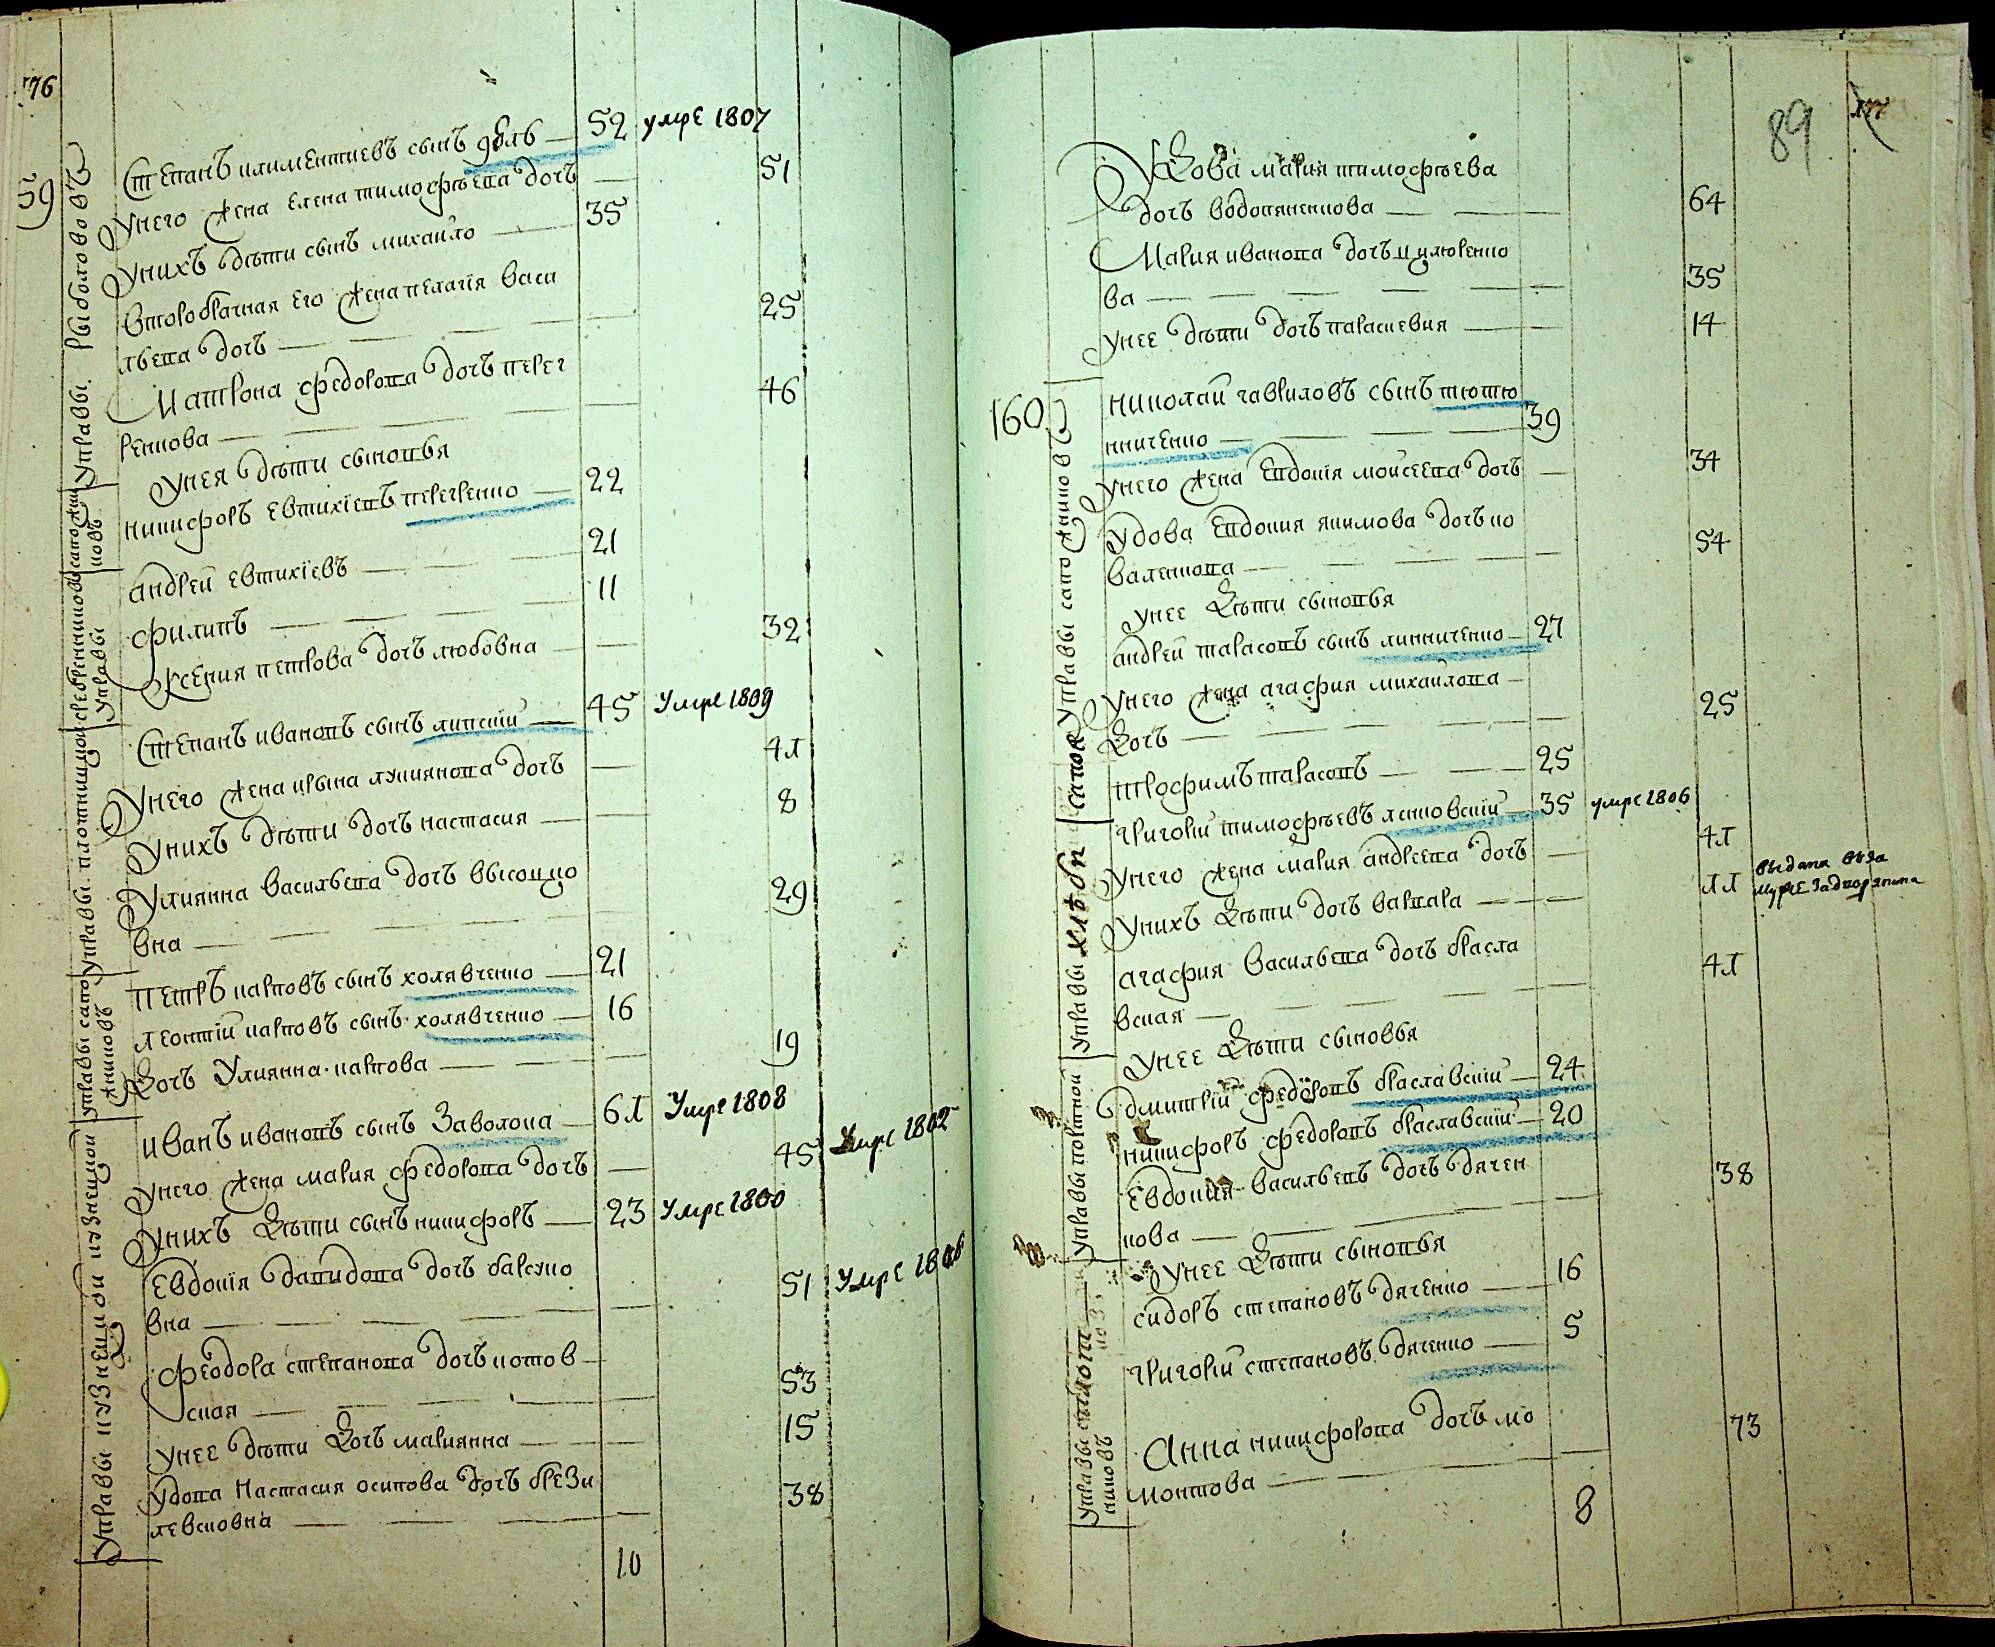 176
59
Управы. Рыболововъ
Степанъ климентиевъ сынъ
52 умре 1807
Унего жена елена тимофѣева дочь
51
Унихъ дѣти сынъ михайло
35
второбрачная его жена пелагія васи
льева дочь
25
Матрона федорова дочь перег
ренкова
46
Унея дѣти сыновья
никифоръ евтихіевъ перегренко
22
андрей евтихіевъ
21
филипъ
11
Ксения петрова дочь любовна
32
Управы
Степанъ ивановъ сынъ липскій
45 Умре 1809
Унего жена ирына лукиянова дочь
40
Унихъ дѣти дочь настасия
8
Улиянна васильева дочь высоцко
вна
29
управы плотницкой
Петръ карповъ сынъ холявченко
21
леонтій карповъ сынъ холявченко
16
дочь Улиянна карпова
19
управы сапо
жниковъ
иванъ ивановъ сынъ Заволока
60 Умре 1808
Унего жена мария федорова дочь
45 Умре 1802
Унихъ дѣти сынъ никифоръ
23 Умре 1800
Евдокія давидова дочь барсуко
вна
51 Умре 1806
феодора степанова дочь котов
ская
53
унее дѣти дочь марианна
15
удова Настасия осипова дочь брези
левсковна
38
Управы кузнецкой
10
89
177
Удова мария тимофѣева
дочь водопяненкова
64
Мария иванова дочь цилюренко
ва
35
унее дѣти дочь параскевия
14
160
николай гавриловъ сынъ тютю
нниченко
39
унего жена Евдокія мойсеева дочь
34
удова Евдокия якимова дочь ко
валенкова
54
унее дѣти сыновья
андрей тарасовъ сынъ линниченко
27
унего жена агафия михайлова
дочь
25
трофимъ тарасовъ
25
Управы сапожниковъ
григорій тимофѣевъ ясновскій
35 умре 1806
унего жена мария андреева дочь
40
унихъ дѣти дочь варвара
00 выдана въза
мужЕ
агафия васильева дочь брасла
вская
40
управы хлѣбн
унее дѣти сыновья
дмитрій федоровъ браславскій
24
никифоръ федоровъ браславскій
20
Евдокия васильевъ дочь дячен
кова
38
унее дѣти сыновья
сидоръ степановъ дяченко
16
григорій степановъ дяченко
5
Анна никифорова дочь мо
монтова
73
8